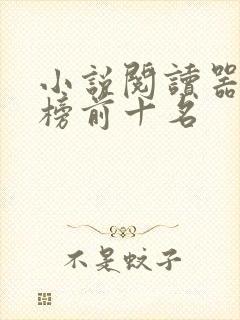 小説閱讀器
榜前十名
不是蚊子